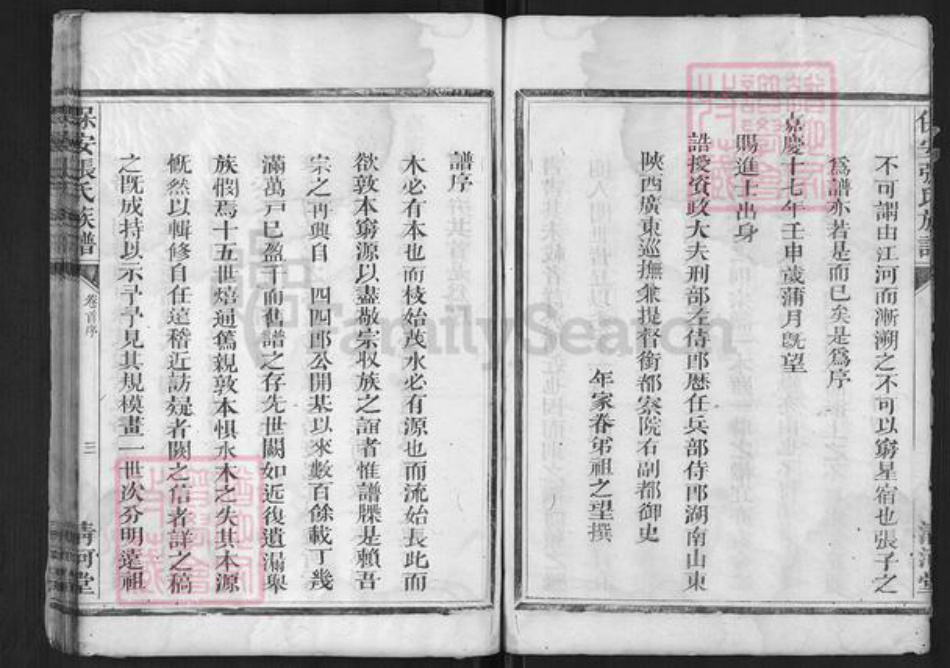 不可謂由江河而漸溯之不可以窮星宿也張子之
爲譜亦若是而已矣是爲序
嘉慶十七年壬申歲蒲月旣望
賜進士出身
誥授資政大夫刑部左侍郎歷任兵部侍郎湖南山東
陝西廣東巡撫兼提督銜都察院右副都御史
年家眷弟祖之望撰
譜序
木必有本也而枝始茂水必有源也而流始長此而
欲敦本窮源以盡敬宗収族之誼者惟譜牒是賴吾
宗之再興自 四四郎公開基以來數百餘載丁幾
滿萬戸已盈千而舊譜之存先世闕如近復遺漏舉
族憫焉十五世熺通篤親敦本惧水木之失其本源
慨然以輯修自任遠稽近訪疑者闕之信者詳之稿
之既成持以示予予見其規模畫一世次分明遠祖
保安張氏族譜
卷首序
三
清河堂
FamilySearch